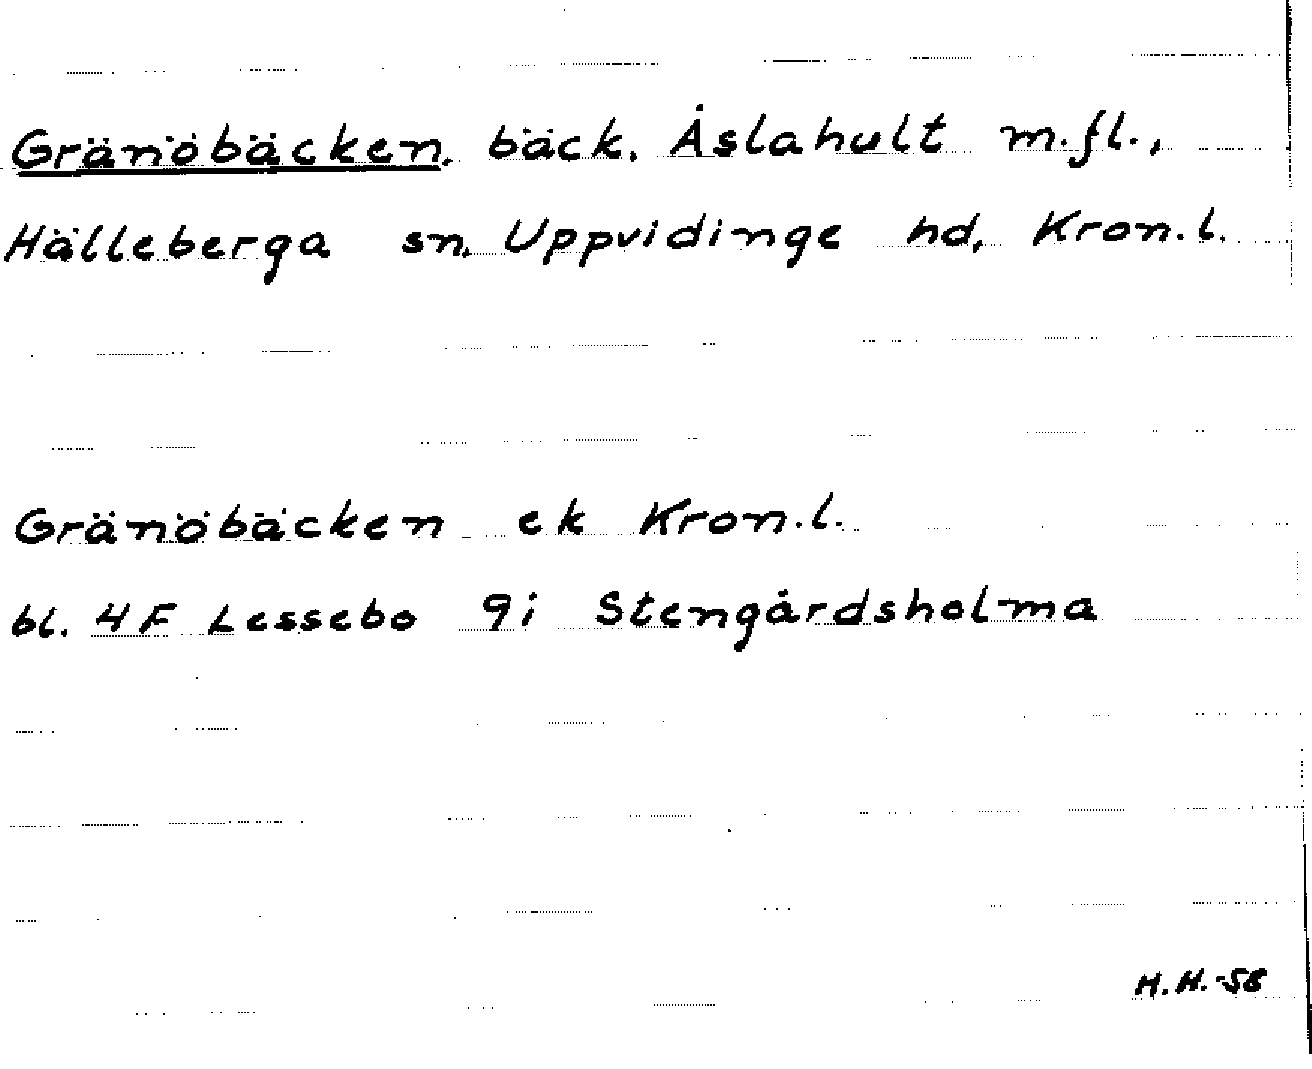 Gränöbäcken, bäck, Åslahult m.fl.,
Hälleberga sn, Uppvidinge hd, Kron.l.
Gränöbäcken ek Kron.l.
bl. 4F Lessebo 9i Stengårdsholma
H.H.-58